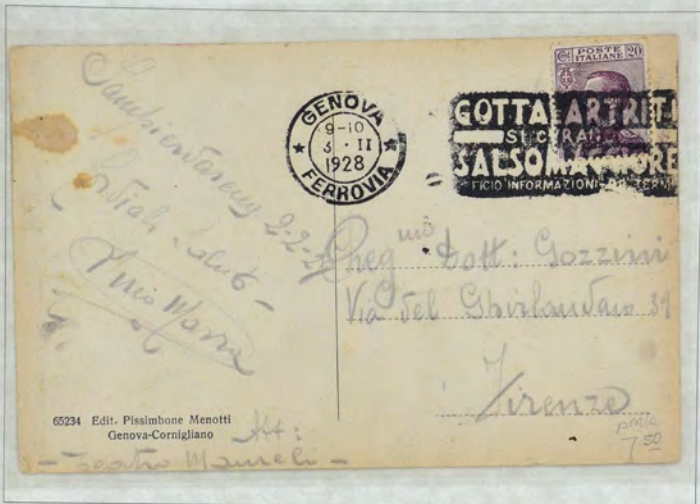 POSTE
ITALIANE 20
GENOVA
9-10
3 · II
1928
FERROVIA
GOTTA ARTRIT
SI CURANO
SALSOMAGGIORE
FICIO INFORMAZIONI TERM
Sampierdarena 2-2-28
Cordiali saluti -
Preg mo Dott: Gozzini
Via del Ghirlandaio 39
Firenze
65234 Edit. Pissimbone Menotti
Genova-Cornigliano
Att:
- Teatro -
pmk
7.50